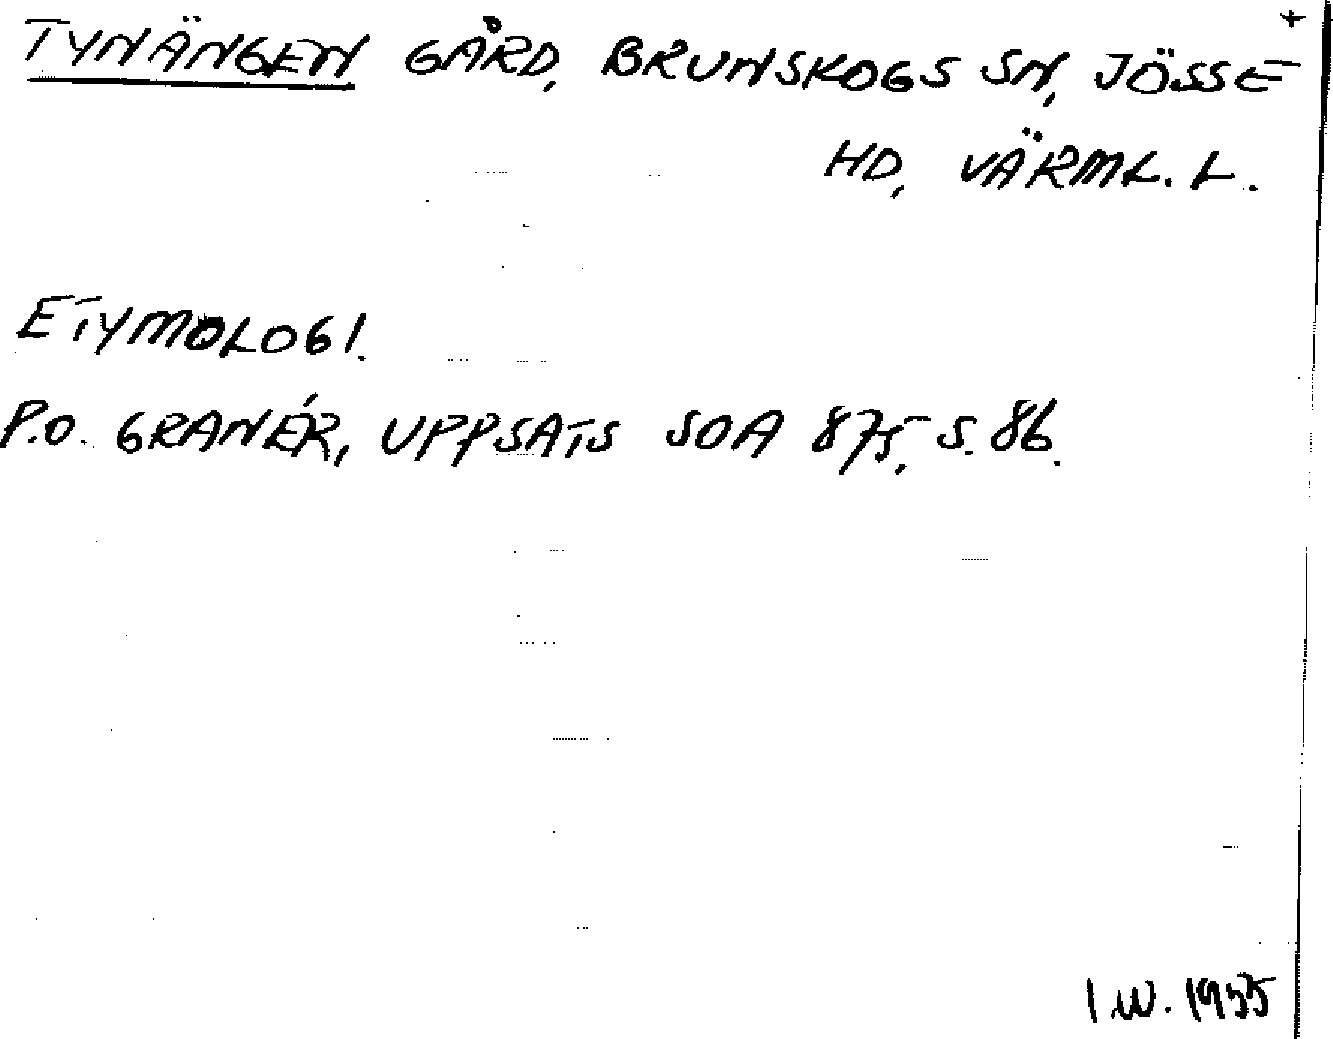 +
TYNÄNGEN GÅRD, BRUNSKOGS SN, JÖSSE
HD, VÄRML. L.
ETYMOLOGI.
P.O. GRANÉR, UPPSATS SOA 875, S. 86.
I.W. 1955